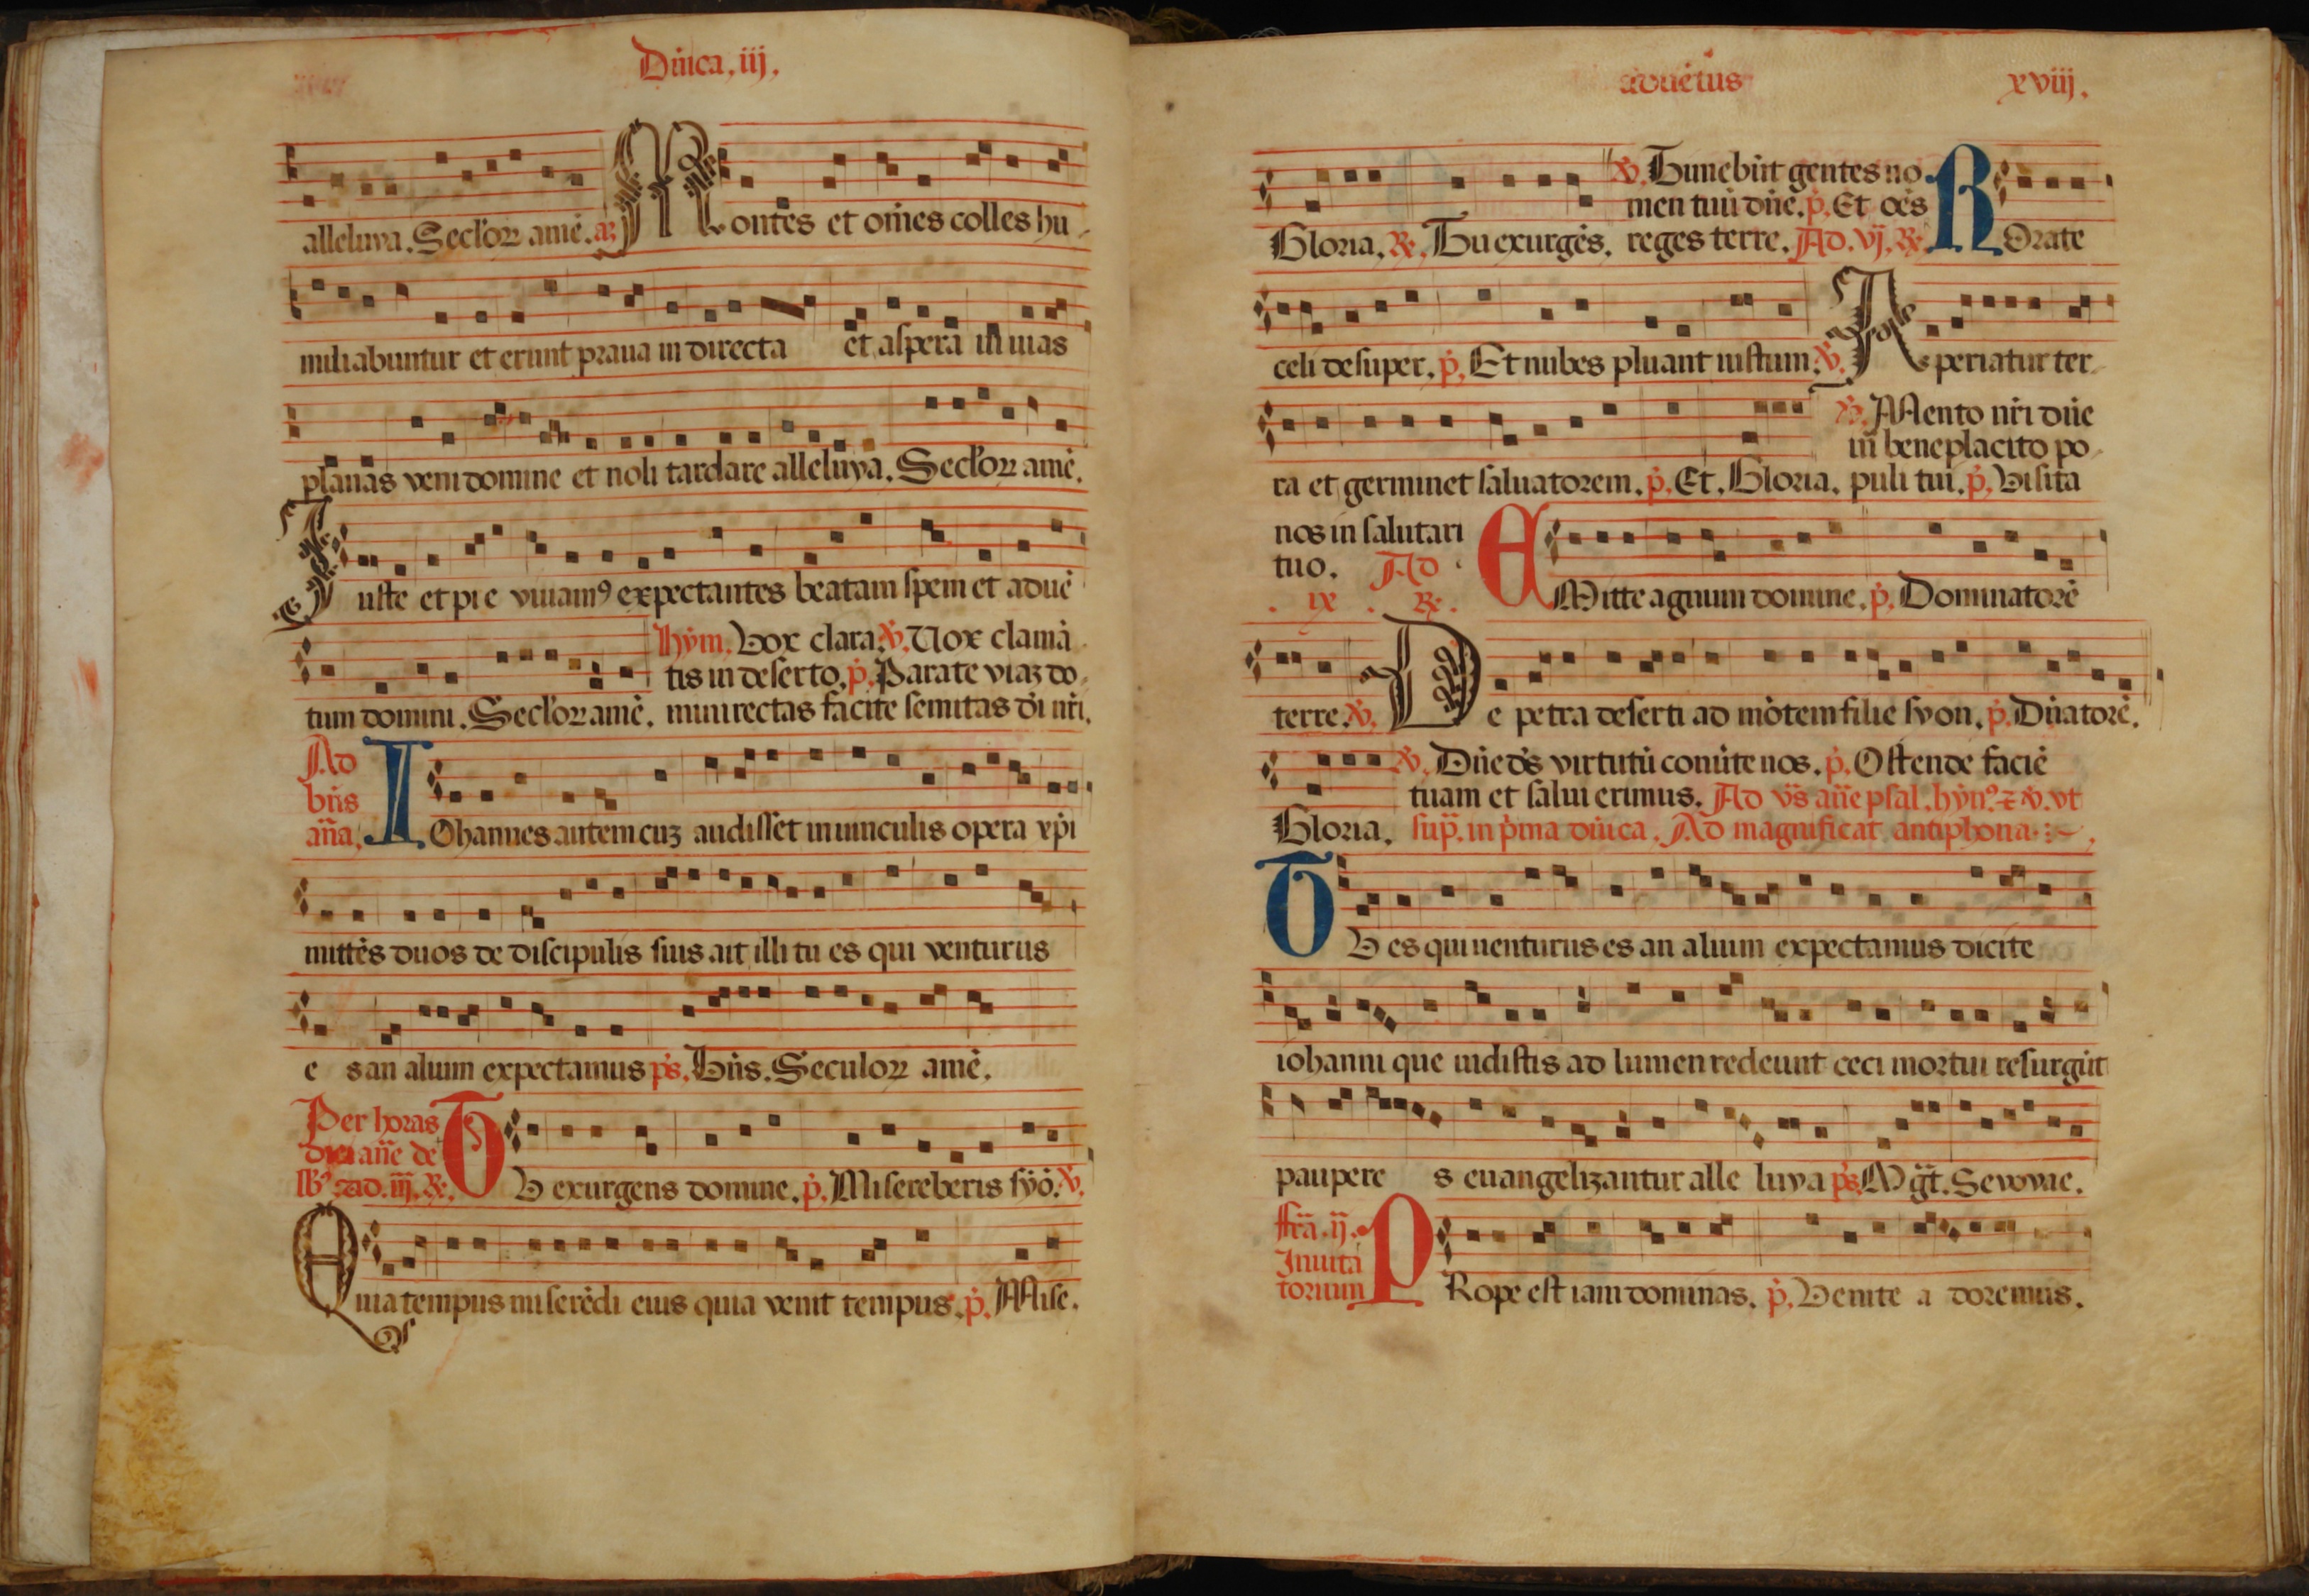 Dn̄ica, iij,
alleluya. Secl'oꝝ amē. aꝫ Montes et om̄es colles hu-
miliabuntur et erunt praua in directa et aspera in uias
planas veni domine et noli tardare alleluya. Secl'oꝝ amē.
Iuste et pie viuamꝰ expectantes beatam spem et aduē
hȳm, Vox clara. ℣, Uox clamā
tis in deserto. p̄, Parate viaꝫ do-
tum domini. Secl'oꝝ amē. mini rectas facite semitas dī nr̄i.
Ad
bn̄s
an̄a, IOhannes autem cuꝫ audisset in uinculis opera xp̄i
mittēs duos de discipulis suis ait illi tu es qui venturus
e s an alium expectamus ps̄, Bn̄s. Seculoꝝ amē.
Per horas
diei an̄e de
lbꝰ Ad. iij, ℟, TV exurgens domine. p̄, Misereberis syō. ℣,
Quia tempus miserēdi eius quia venit tempus. p̄, Mise.
aduētus xviij.
℣, Timebūt gentes no
men tuū dn̄e. p̄, Et oēs
Gloria, ℟, Tu exurgēs. reges terre. Ad. vj, ℟, ROrate
celi desuper. p̄, Et nubes pluant iustum. ℣, Aperiatur ter-
℣, Mento nr̄i dn̄e
in beneplacito po-
ra et germinet saluatorem. p̄, Et, Gloria, puli tui. p̄, Visita
nos in salutari
tuo. Ad
. ix . ℟. EMitte agnum domine. p̄, Dominatorē
terre. ℣, De petra deserti ad mōtem filie syon. p̄, Dn̄atorē.
℣, Dn̄e ds̄ virtutū conūte nos. p̄, Ostende faciē
tuam et salui erimus. Ad vs̄ an̄e psal. hȳnꝰ ⁊ ℣. vt
Gloria, sup̄. in p̄ma dn̄ica. Ad magnificat antiphona
TV es qui uenturus es an alium expectamus dicite
iohanni que uidistis ad lumen redeunt ceci mortui resurgūt
paupere s euangelizantur alle luya ps̄, Mḡt. Sevovae.
fr̄a. ij.
Inuita
torium PRope est iam dominus. p̄, Venite a doremus.